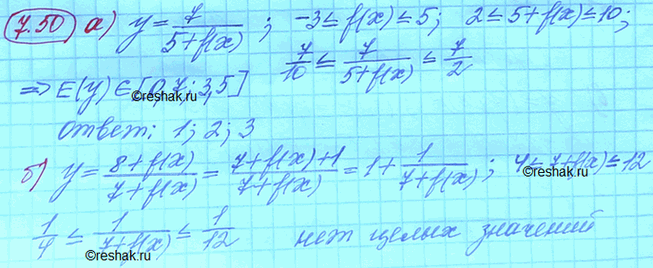 7.50 а) y = 7/(5+f(x)) ; -3 ≤ f(x) ≤ 5; 2 ≤ 5+f(x) ≤ 10;
7/10 ≤ 7/(5+f(x)) ≤ 7/2
=> E(y) ∈ [0,7; 3,5]
©reshak.ru
ответ: 1; 2; 3
б) y = (8+f(x))/(7+f(x)) = (7+f(x)+1)/(7+f(x)) = 1 + 1/(7+f(x)) ; 4 ≤ 7+f(x) ≤ 12
©reshak.ru
©reshak.ru
1/4 ≤ 1/(7+f(x)) ≤ 1/12 нет целых значений